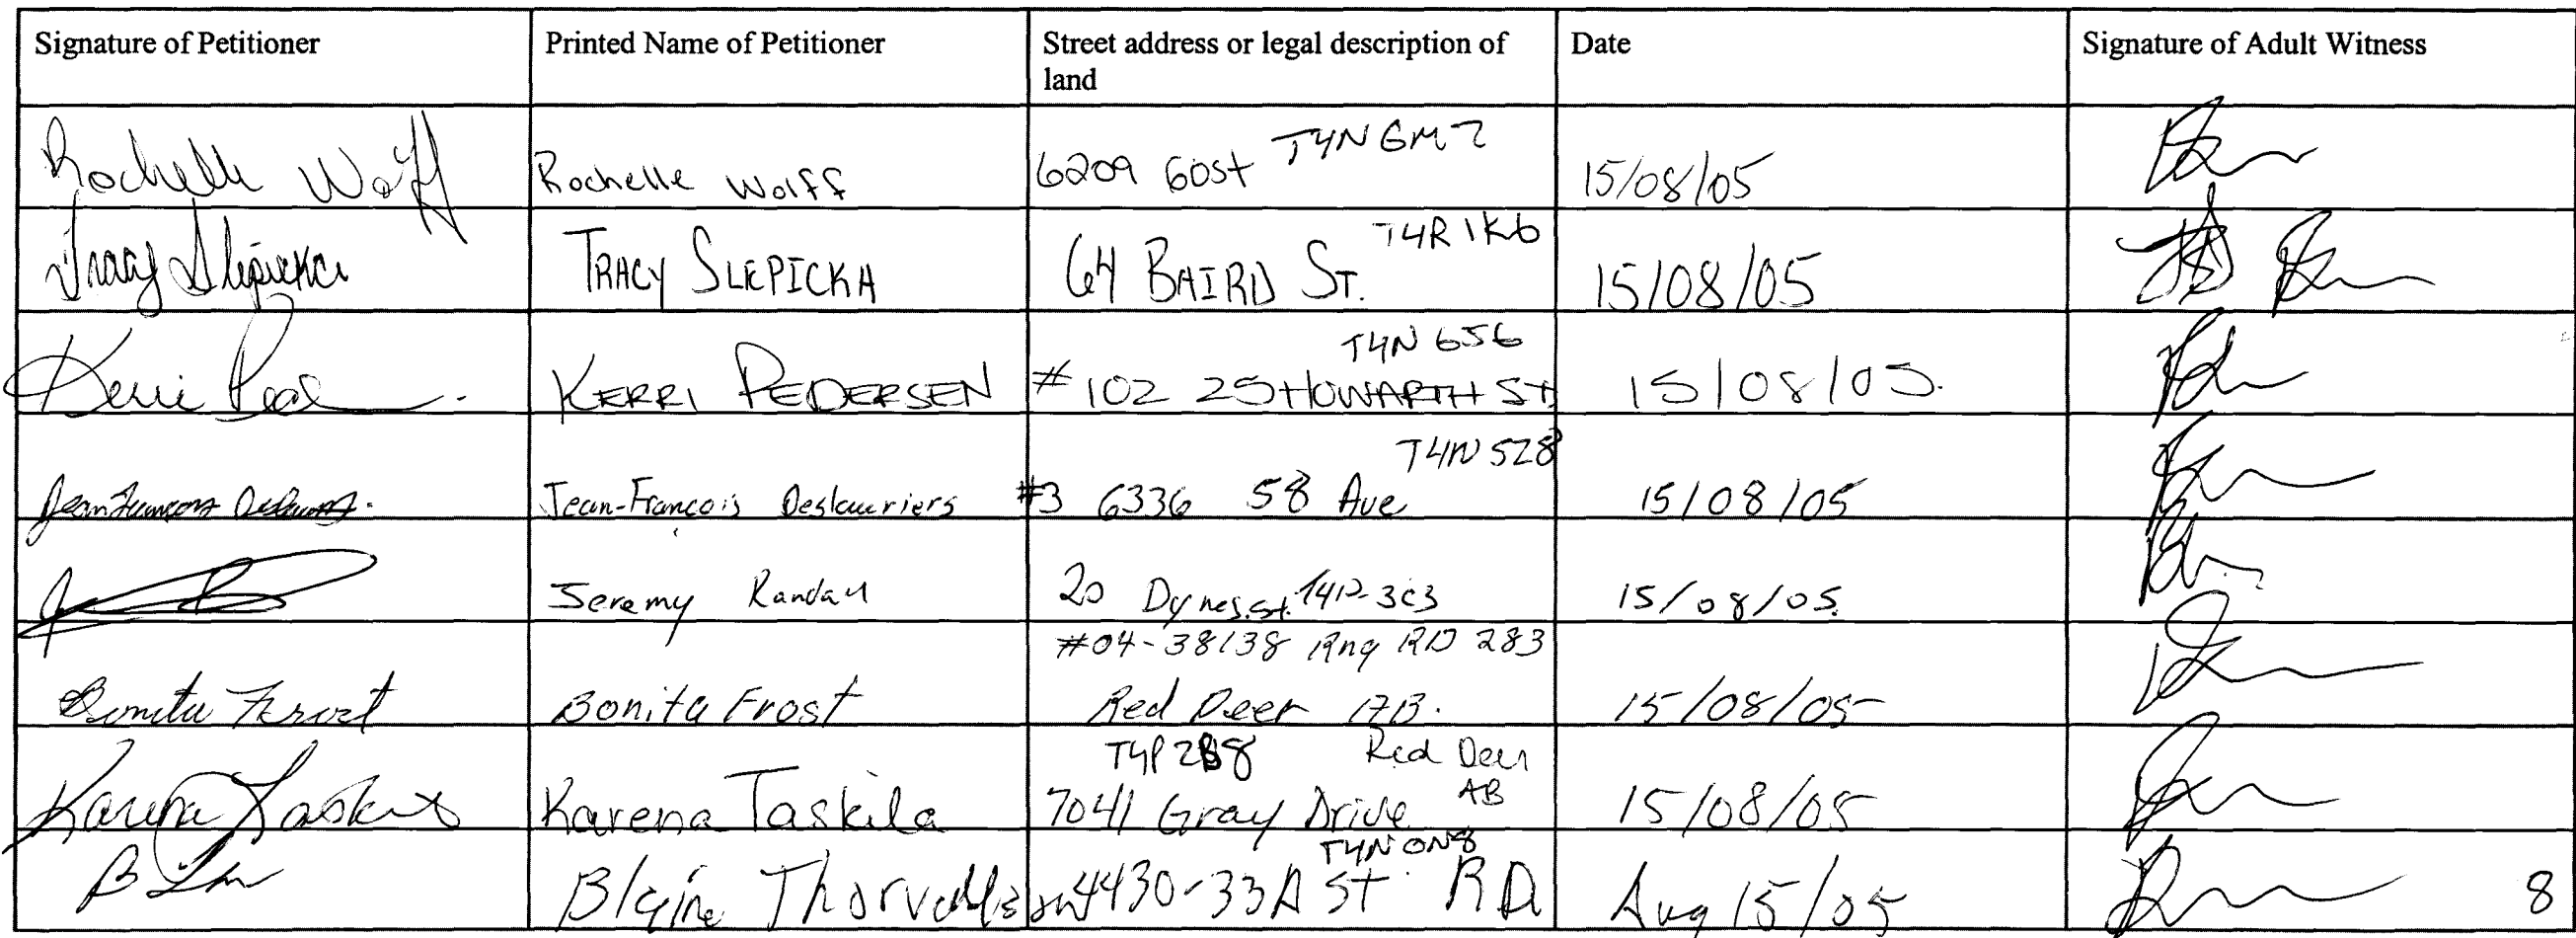 Signature of Petitioner
Printed Name of Petitioner
Street address or legal description of
land
Date
Signature of Adult Witness
Rochelle Wolff
Rochelle Wolff
6209 60st T4N 6M2
15/08/05
Tracy Slepicka
TRACY SLEPICKA
64 BAIRD ST. T4R 1K6
15/08/05
Kerri
KERRI PEDERSEN
T4N 6S6
#102 25 HOWARTH ST
15/08/05.
Jean-François Deslauriers
T4N 5Z8
#3 6336 58 Ave
15/08/05
Jeremy Randall
20 Dynes.st. T4P-3C3
15/08/05.
Bonita Frost
Bonita Frost
#04-38138 Rng RD 283
Red Deer AB.
15/08/05
Karena Taskila
Karena Taskila
T4P 2B8 Red Deer
AB
7041 Gray Drive
15/08/05
Blaine Thorvaldson
T4N 0N8
4430-33A St. RD
Aug 15/05
8